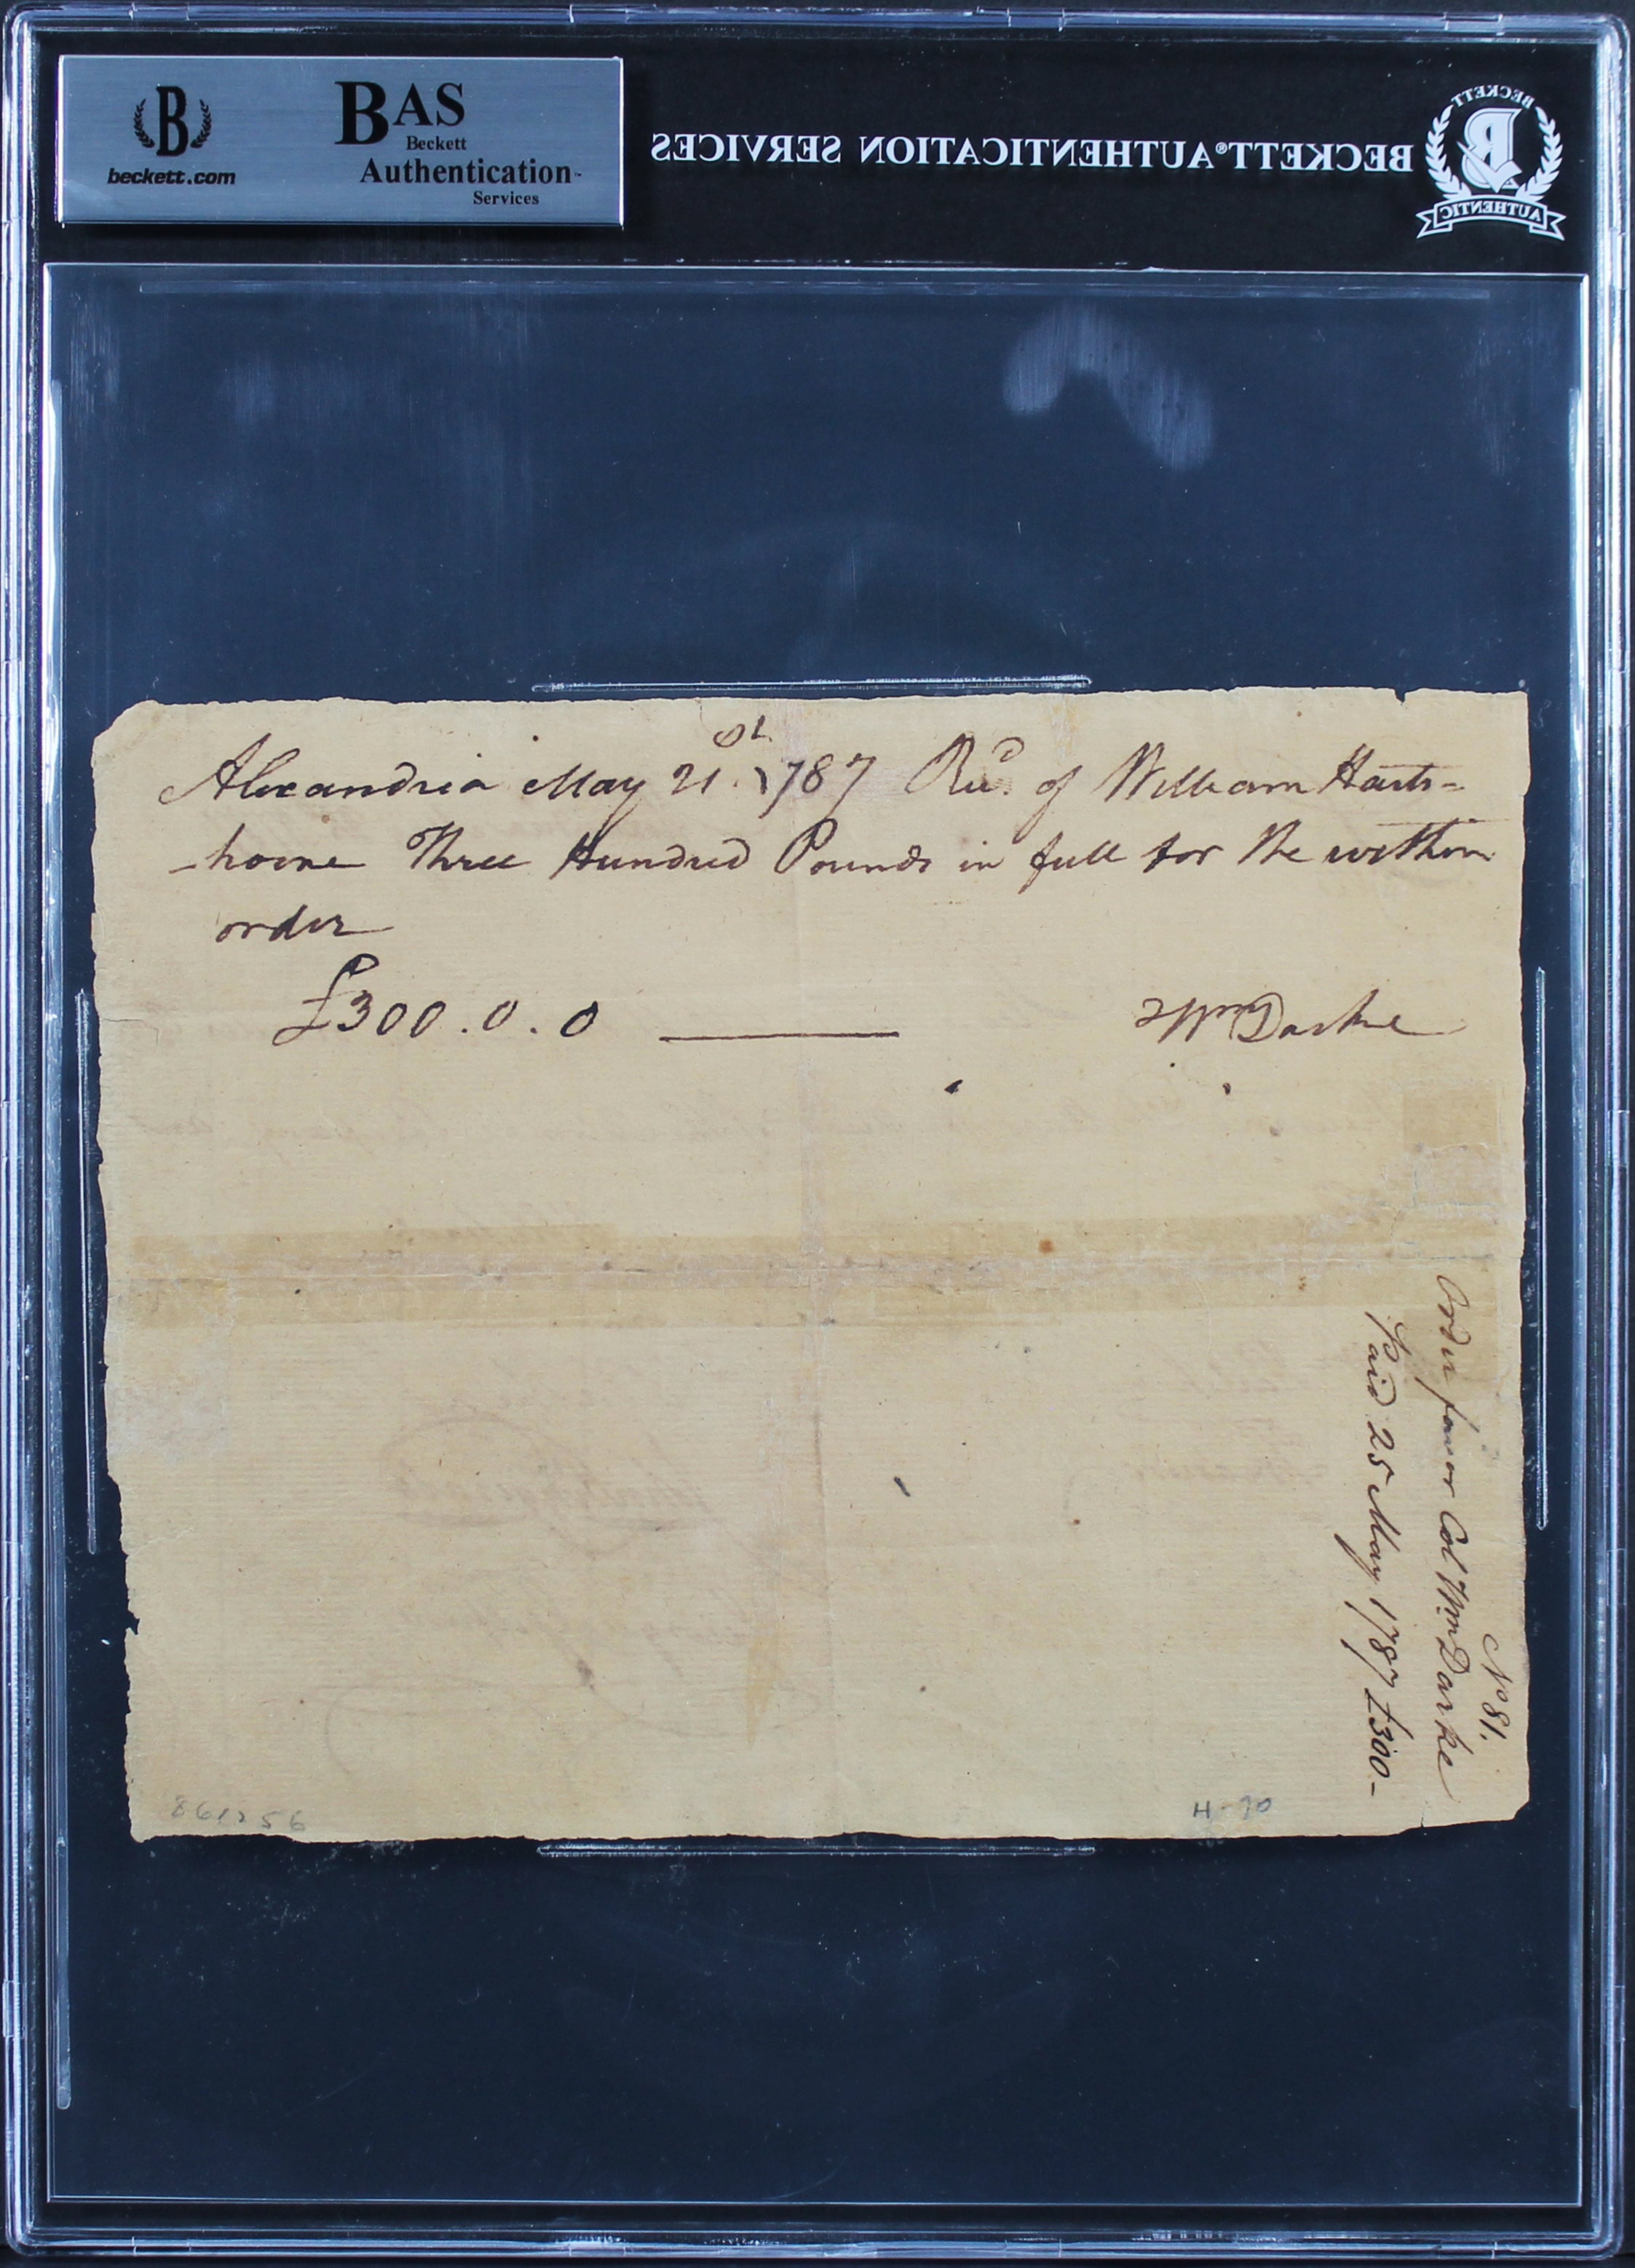 B
beckett.com
BAS
Beckett
Authentication™
Services
BECKETT® AUTHENTICATION SERVICES
BECKETT
B
AUTHENTIC
Alexandria May 21.st 1787 Recd. of William Harts=
-horne Three Hundred Pounds in full for the within
order
£300.0.0 Wm Darke
No 81.
Order favor Col Wm Darke
Paid 25 May 1787 £300-
861256
H-70